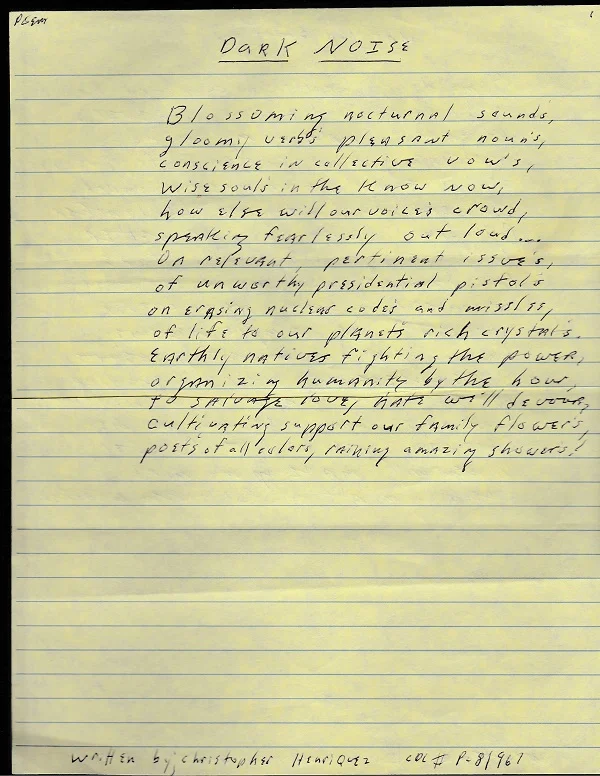 POEM 1
DARK NOISE
Blossoming nocturnal sounds,
gloomy verb's pleasant noun's,
conscience in collective vow's,
wise soul's in the know now,
how else will our voice's crowd,
speaking fearlessly out loud...
On relevant, pertinent issue's,
of unworthy presidential pistol's
on erasing nuclear code's and missles,
of life to our planet's rich crystal's.
Earthly natives fighting the power,
organizing humanity by the hour,
to salvage love, hate will devour,
cultivating support our family flower's,
poets of all colors, raining amazing showers!
written by; christopher Henriquez CDC# P-81967